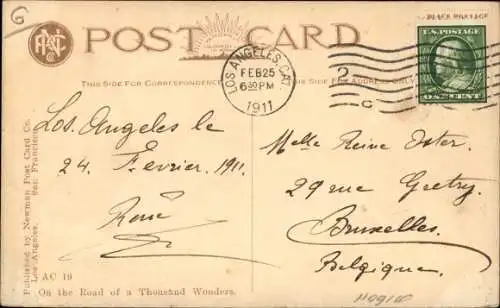 6
POST CARD
PLACE POSTAGE
U.S. POSTAGE
ONE CENT
THIS SIDE FOR CORRESPONDENCE
THIS SIDE FOR ADDRESS ONLY
LOS ANGELES, CAL.
FEB 25
6 30 PM
1911
2
C
Los Angeles le
24 Fevrier 1911.
René
Melle Reine Oster.
29 rue Gretry.
Bruxelles.
Belgique.
Published by Newman Post Card Co.
Los Angeles. San Francisco
AC 19
On the Road of a Thousand Wonders.